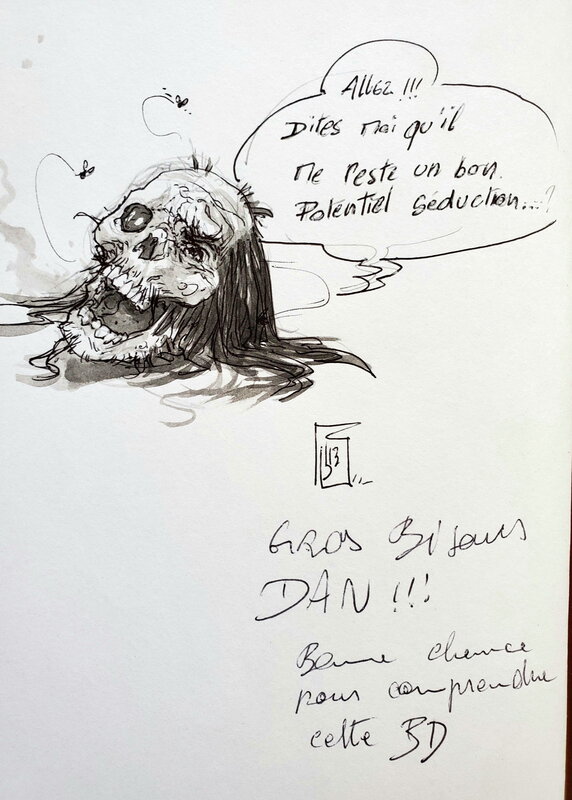 Allez !!!
Dites moi qu'il
me reste un bon.
Potentiel séduction...?
GROS Bisous
DAN !!!
Bonne chance
pour comprendre
cette BD